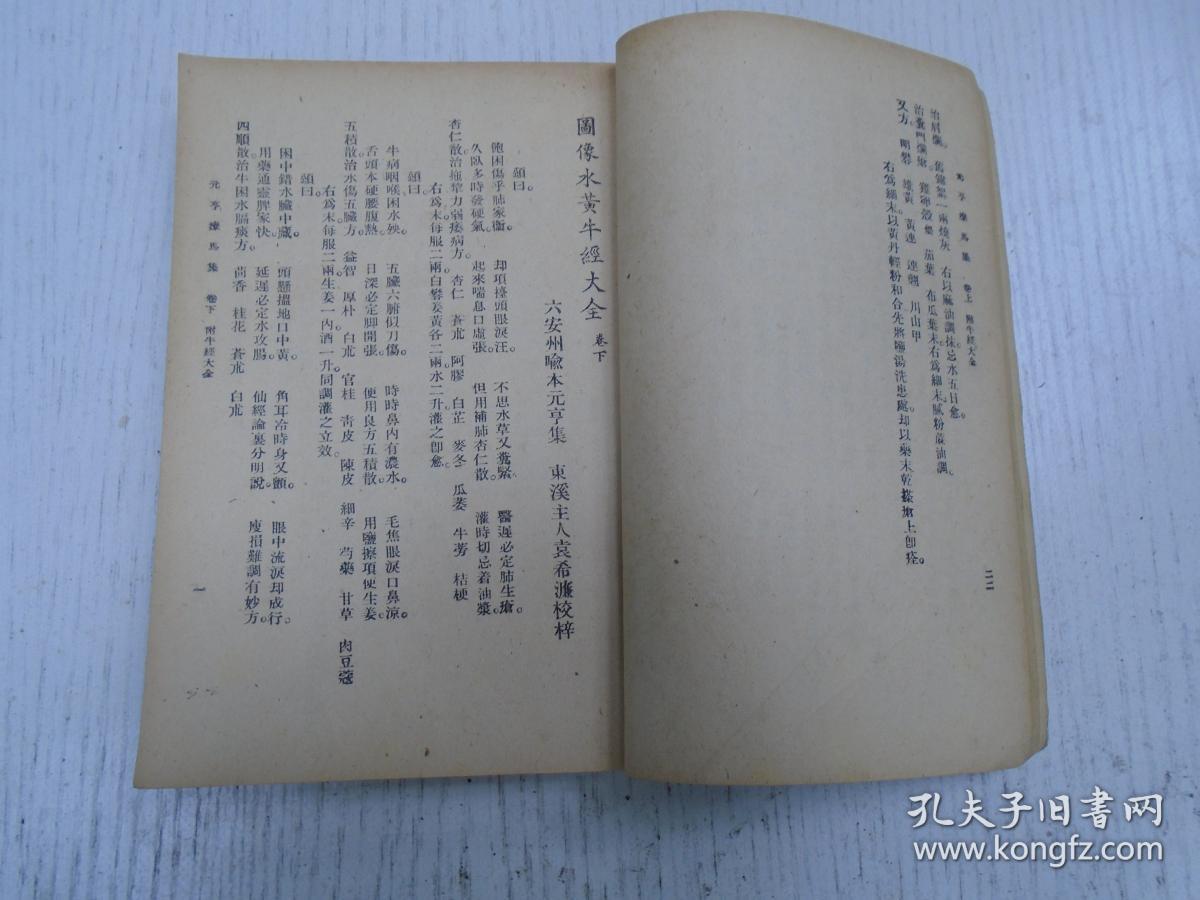 元亨療馬集 卷上 附牛經大全
治肩爛。舊綿絮一兩燒灰 右以麻油調抹忌水五日愈。
治糞門爛瘡。雞卵殼 茄葉 布瓜葉末右爲細末膩粉油調
又方。明礬 雄黃 黃連 連翹 川山甲
右爲細末以黃丹輕粉和合先將鹽湯洗患處却以藥末乾搽瘡上卽痊。
二二
圖像水黃牛經大全 卷下
六安州喩本元亨集 東溪主人袁希濂校梓
頌曰。
飽困傷乎肺家衝 却項擡頭眼淚汪。不思水草又糞緊 醫遲必定肺生瘡。
久臥多時發硬氣 起來喘息口虛張。但用補肺杏仁散 灌時切忌着油漿。
杏仁散治拖犂力弱痿病方。杏仁 蒼朮 阿膠 白芷 麥冬 瓜蔞 牛蒡 桔梗
右爲末每服二兩白礬姜黃各二兩水二升灌之卽愈。
頌曰。
牛病咽喉困水殃 五臟六腑似刀傷。時時鼻內有濃水 毛焦眼淚口鼻涼。
舌頭本硬腰腹熱 日深必定脚開張。便用良方五積散 用鹽擦項便生姜
五積散治水傷五臟方。益智 厚朴 白朮 官桂 靑皮 陳皮 細辛 芍藥 甘草 肉豆蔻
右爲末每服二兩生姜一兩酒一升同調灌之立效。
頌曰。
困中錯水臟中藏 頭懸搵地口中黃。角耳冷時身又顫。眼中流淚却成行。
用藥通靈脾家快。延遲必定水攻腸。仙經論裏分明說。虔損難調有妙方。
四順散治牛困水膈痰方。茴香 桂花 蒼朮 白朮
元亨療馬集 卷下 附牛經大全
一
孔夫子旧书网
www.kongfz.com